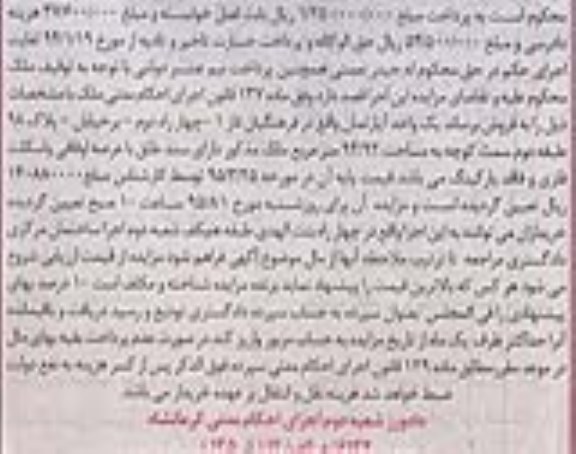 محکوم است به پرداخت مبلغ ریال بابت اصل خواسته و مبلغ هزینه
دادرسی و مبلغ ریال حق الوکاله و پرداخت خسارت تاخیر و تادیه از مورخ لغایت
اجرای حکم در حق محکوم له همچنین پرداخت نیم عشر دولتی با توجه به توقیف ملک
محکوم علیه و تقاضای مزایده این اجرا قصد دارد وفق ماده ۱۳۷ قانون اجرای احکام مدنی ملک با مشخصات
ذیل را به فروش برساند یک واحد آپارتمان واقع در فرهنگیان فاز ۱ - چهار راه دوم - - پلاک ۹۸
طبقه دوم سمت کوچه به مساحت متر مربع ملک مذکور دارای سند
و فاقد پارکینگ می باشد قیمت پایه آن در مورخه ۹۵/۳/۲۵ توسط کارشناس مبلغ
ریال تعیین گردیده است و مزایده آن برای روز مورخ ساعت ۱۰ صبح تعیین گردیده
خریداران می توانند به این اجرا واقع در چهار راه بنت الهدی طبقه همکف شعبه دوم اجرا ساختمان مرکزی
دادگستری مراجعه تا ترتیب ملاحظه آنها از مال موضوع آگهی فراهم شود مزایده از قیمت ارزیابی شروع
می شود هر کس که بالاترین قیمت را پیشنهاد نماید برنده مزایده شناخته و مکلف است ۱۰ درصد بهای
پیشنهادی را فی المجلس بعنوان سپرده به حساب سپرده دادگستری تودیع و رسید دریافت و باقیمانده
آنرا حداکثر ظرف یک ماه از تاریخ مزایده به حساب مزبور واریز کند در صورت عدم پرداخت بقیه بهای مال
در موعد مقرر مطابق ماده ۱۲۹ قانون اجرای احکام مدنی سپرده فوق الذکر پس از کسر هزینه به نفع دولت
ضبط خواهد شد هزینه نقل و انتقال بر عهده خریدار می باشد
دادورز شعبه دوم اجرای احکام مدنی کرمانشاه